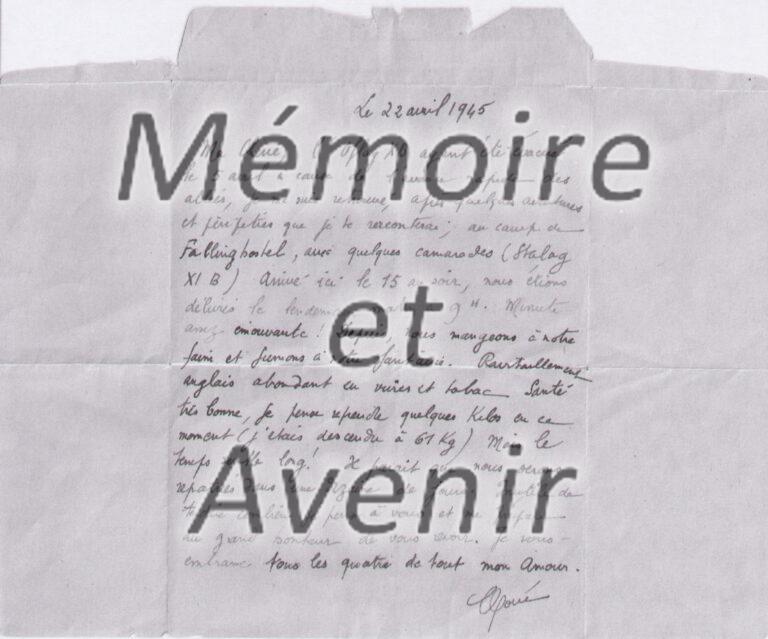 Le 22 avril 1945
Mémoire
Ma
le 5 avril à cause de l'avance rapide des
alliés, je me suis retrouvé, après quelques aventures
et péripéties que je te raconterai, au camp de
Fallingbostel, avec quelques camarades (Stalag
XI B) Arrivé ici le 15 au soir, nous étions
délivrés le 9 H. Minute
et
assez émouvante ! Depuis, nous mangeons à notre
faim et fumons à notre fantaisie. Ravitaillement
anglais abondant en vivres et tabac Santé
très bonne, je pense reprendre quelques Kilos en ce
moment (j'étais descendu à 61 Kg) Mais le
temps semble long ! Il paraît que nous serons
Avenir
rapatriés dans une de jours Inutile de
à vous et me
au grand bonheur de vous revoir. Je vous
embrasse tous les quatre de tout mon Amour.